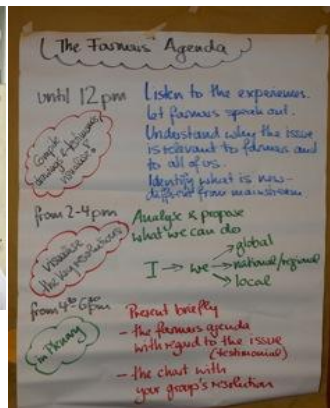 The Farmers Agenda
until 12pm
Listen to the experiences.
let farmers speak out.
Understand why the issue
is relevant to farmers and
to all of us.
Identify what is new-
different from mainstream
from 2-4pm
Analyse & propose
what we can do
Visualise
the key resolutions
I → we → global
national/regional
local
from 4³⁰-6pm
in Plenary
Present briefly
- the farmers agenda
with regard to the issue
(testimonial)
- the chart with
your group's resolution